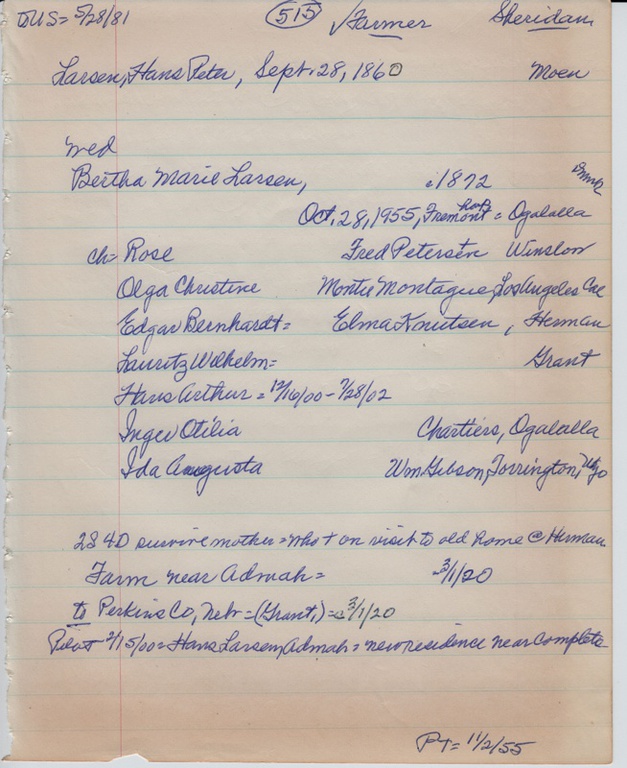 TO US = 5/28/81 515 ✓Farmer Sheridan
Larsen, Hans Peter, Sept. 28, 1860 Moen
wed
Bertha Marie Larsen, c1872 Dmk
Oct. 28, 1955, Fremont hosp = Ogalalla
ch = Rose Fred Petersen Winslow
Olga Christine Monte Montague, Los Angeles Cal
Edgar Bernhardt = Elma Knutsen, Herman
Lauritz Wilhelm = Grant
Hans Arthur = 12/16/00 - 7/28/02
Inger Otilia Chartiers, Ogalalla
Ida Augusta Wm Gibson, Torrington, Wyo
2S 4D survive mother = who + on visit to old home @ Herman
Farm near Admah = -3/1/20
to Perkins Co, Nebr = (Grant,) = 3/1/20
Pilot 2/15/00 = Hans Larsen, Admah = new residence near complete
PT = 11/2/55